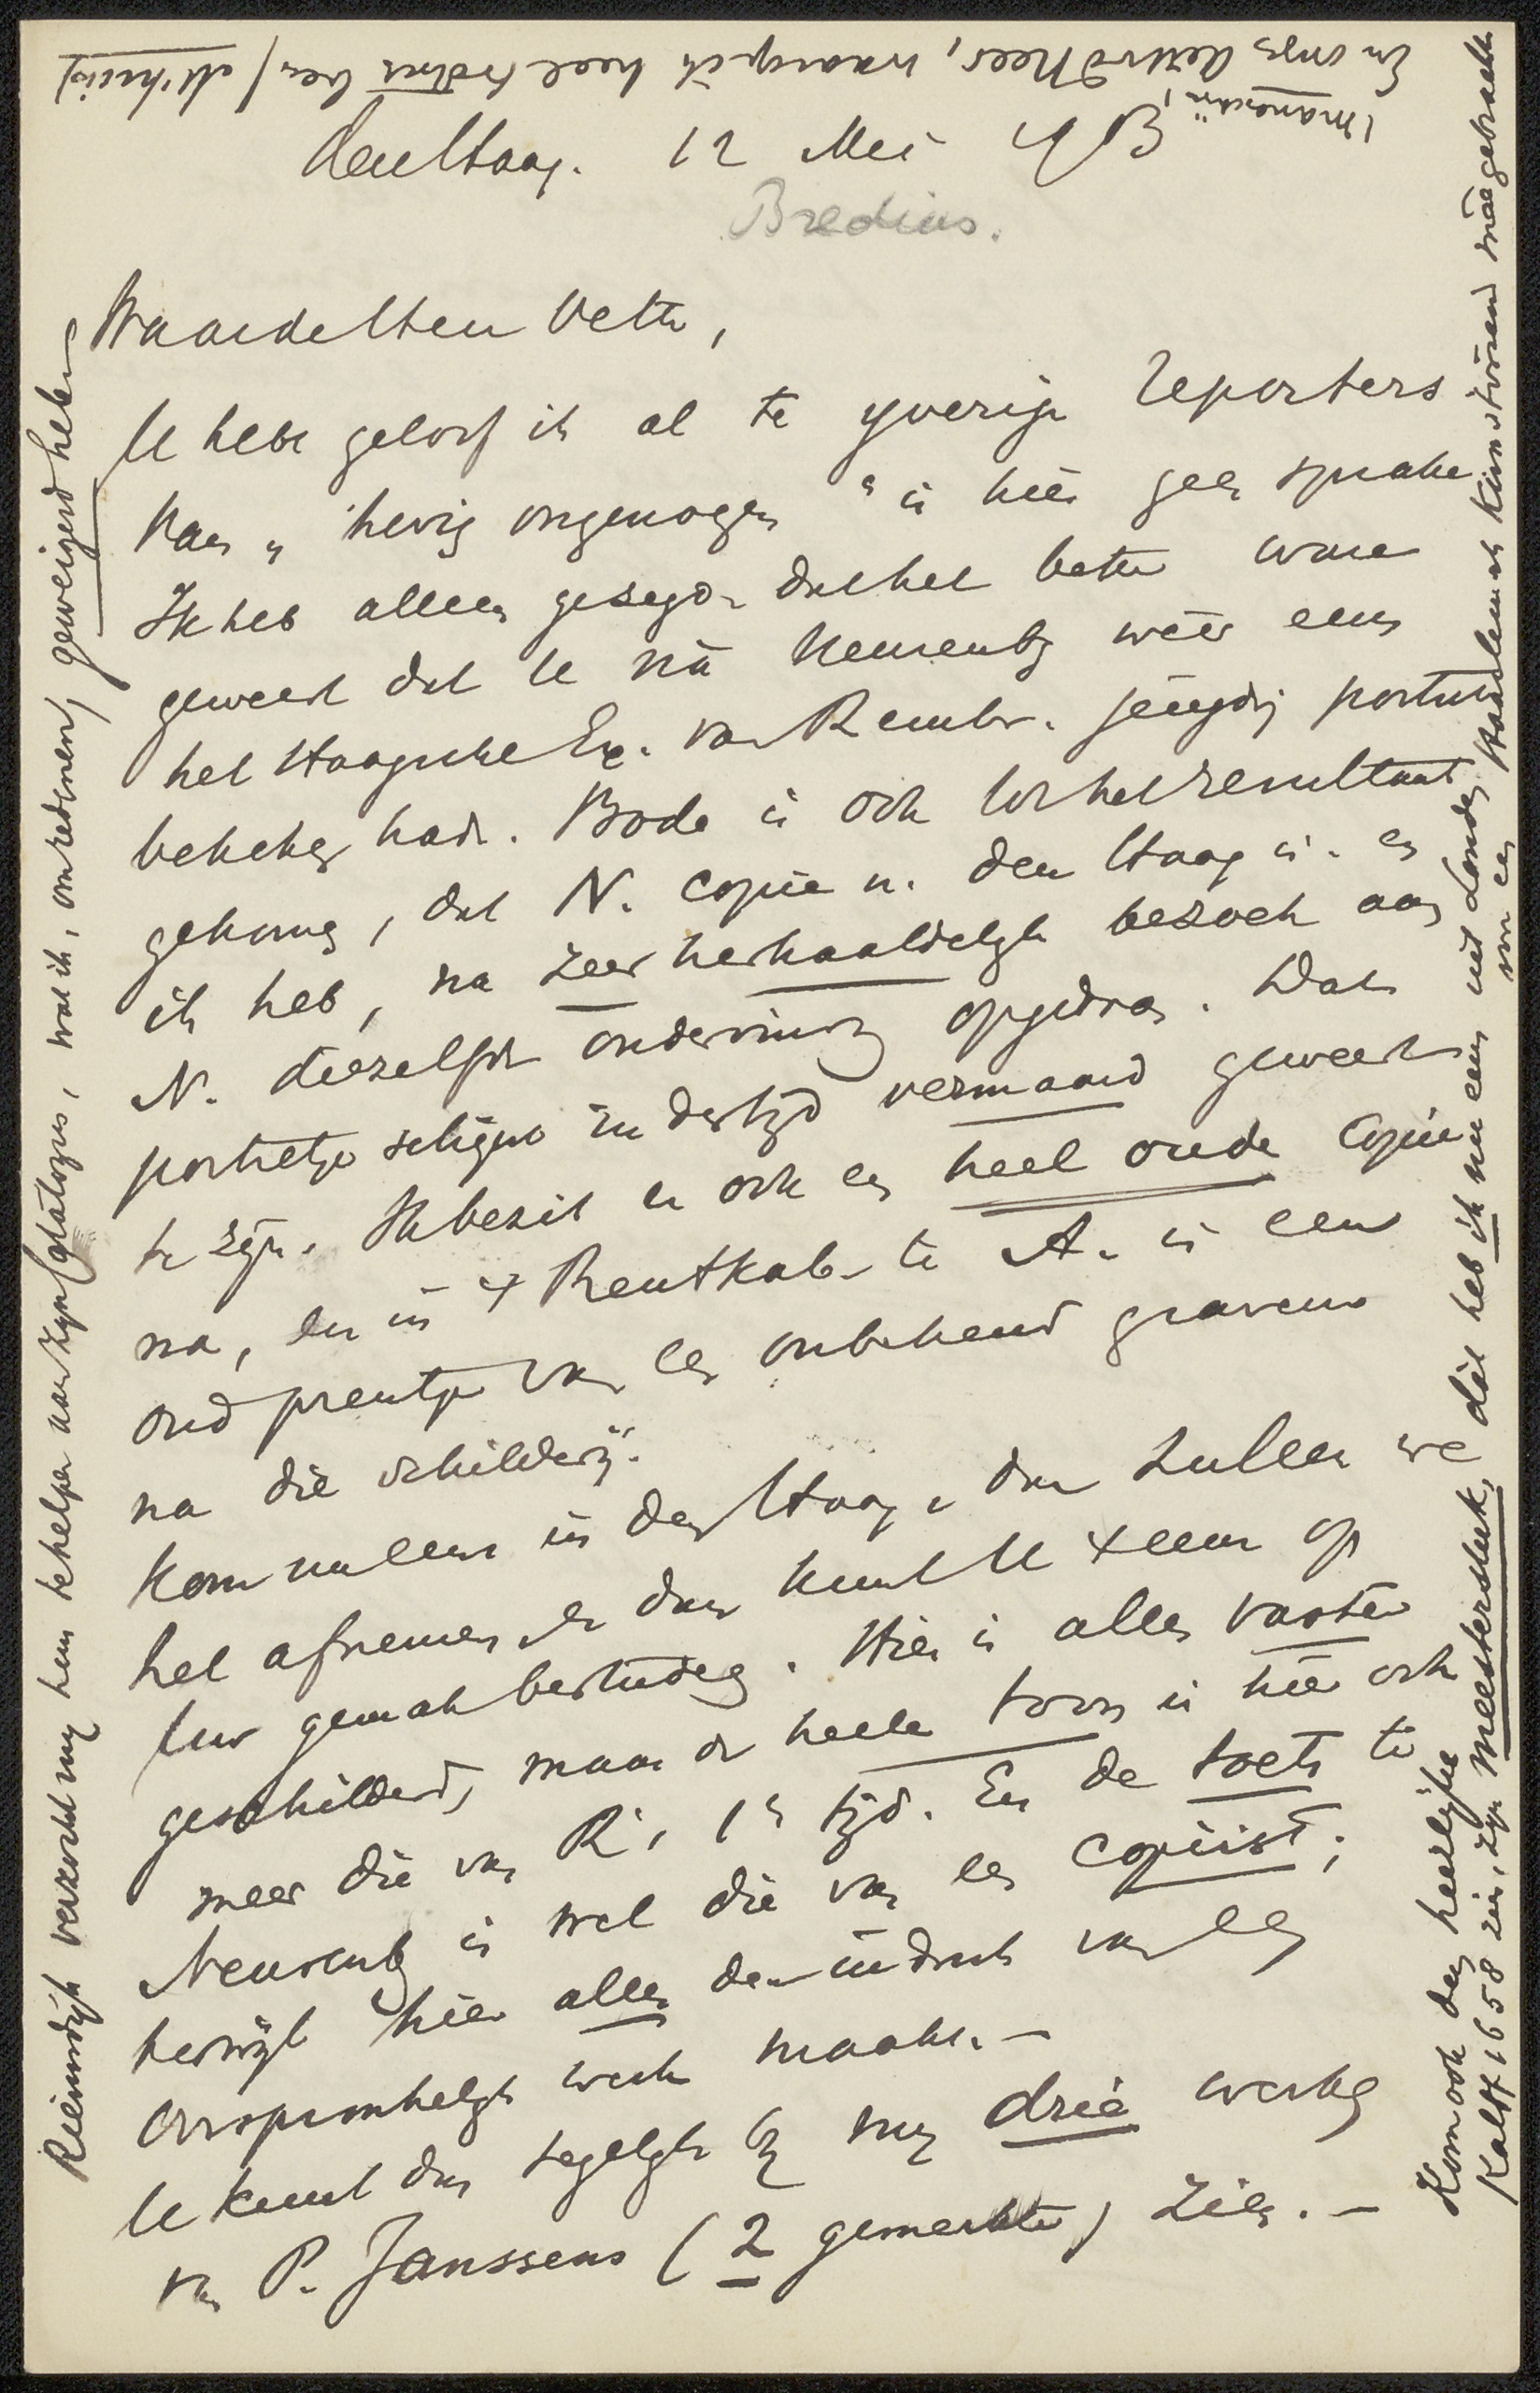 den Haag. 12 Mei 93
Bredius.
Waarde Heer Veth,
U hebt geloof ik al te yverige reporters
Van „hevig ongenoegen" is hier geen sprake
Ik heb alleen gezegd, dat het beter ware
geweest dat U na Neurenbg weer eens
het Haagsche Ex. van Rembr. jeugdig portret
bekeken had. Bode is ook tot het resultaat
gekomen, dat N. copie n. den Haag is. en
ik heb, na zeer herhaaldelyk bezoek aan
N. diezelfde ondervinding opgedaan. Dat
portretje schijnt indertyd vermaard geweest
te zyn. Ik bezit er ook een heel oude Copie
na, en in 't Prentkab. te A. is een
oud prentje van een onbekend graveur
na die schildery.
Kom nu eens in den Haag, dan zullen we
het afnemen en dan kunt U 't eens op
Uw gemak bestudeeren. Hier is alles vaster
geschilderd, maar de heele toon is hier ook
meer die van R's 1e tyd. En de toets te
Neurenbg is wel die van een copiist;
terwyl hier alles den indruk van een
oorspronkelyk werk maakt. —
U kunt dan tegelyk by my drie werken
van P. Janssens (2 gemerkte) zien. —
Kom ook den heerlyke
Kalff 1658 zien, zyn meesterstuk, dat heb ik nu eens uit Londen
van een Haarlemsch Kunstvriend meegebracht
En onze Aert v d Neer, waarop ik heel trotsch ben /
Riemsdyk verzocht my hem te helpen aan zyn Catalogus, wat ik, om redenen, geweigerd heb